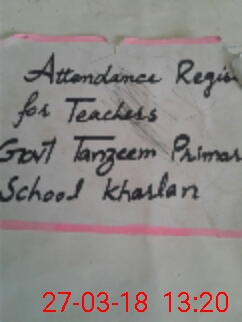 Attendance Regis
for Teachers
Govt Tanzeem Primar
School Kharlan
27-03-18 13:20